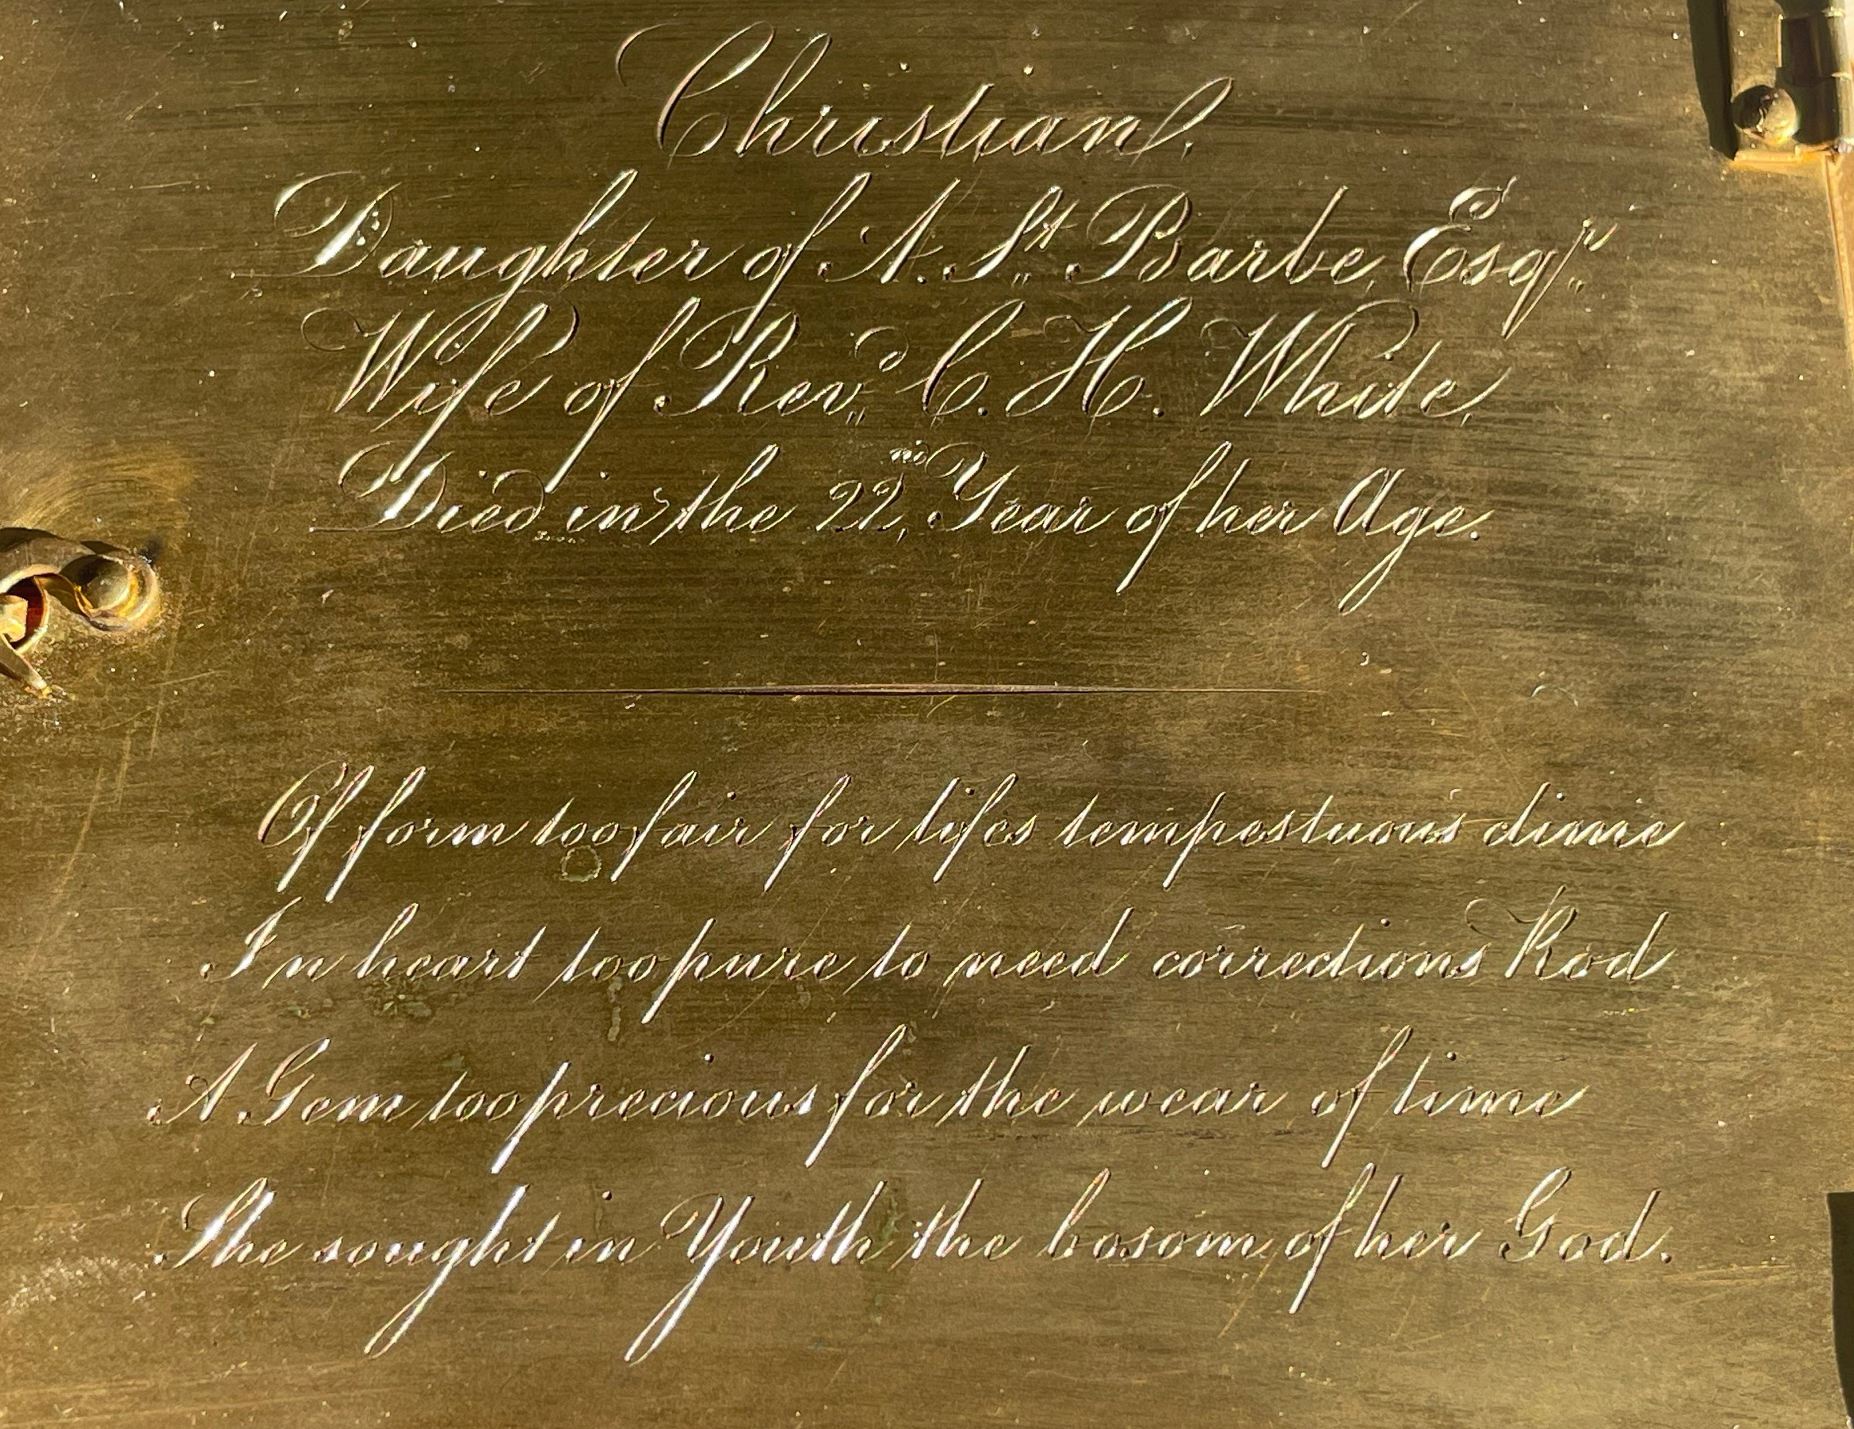 Christian,
Daughter of A. St. Barbe, Esqr.
Wife of Revd. C. H. White,
Died in the 22nd Year of her Age.
Of form too fair for lifes tempestuous clime
In heart too pure to need corrections Rod
A Gem too precious for the wear of time
She sought in Youth the bosom of her God.